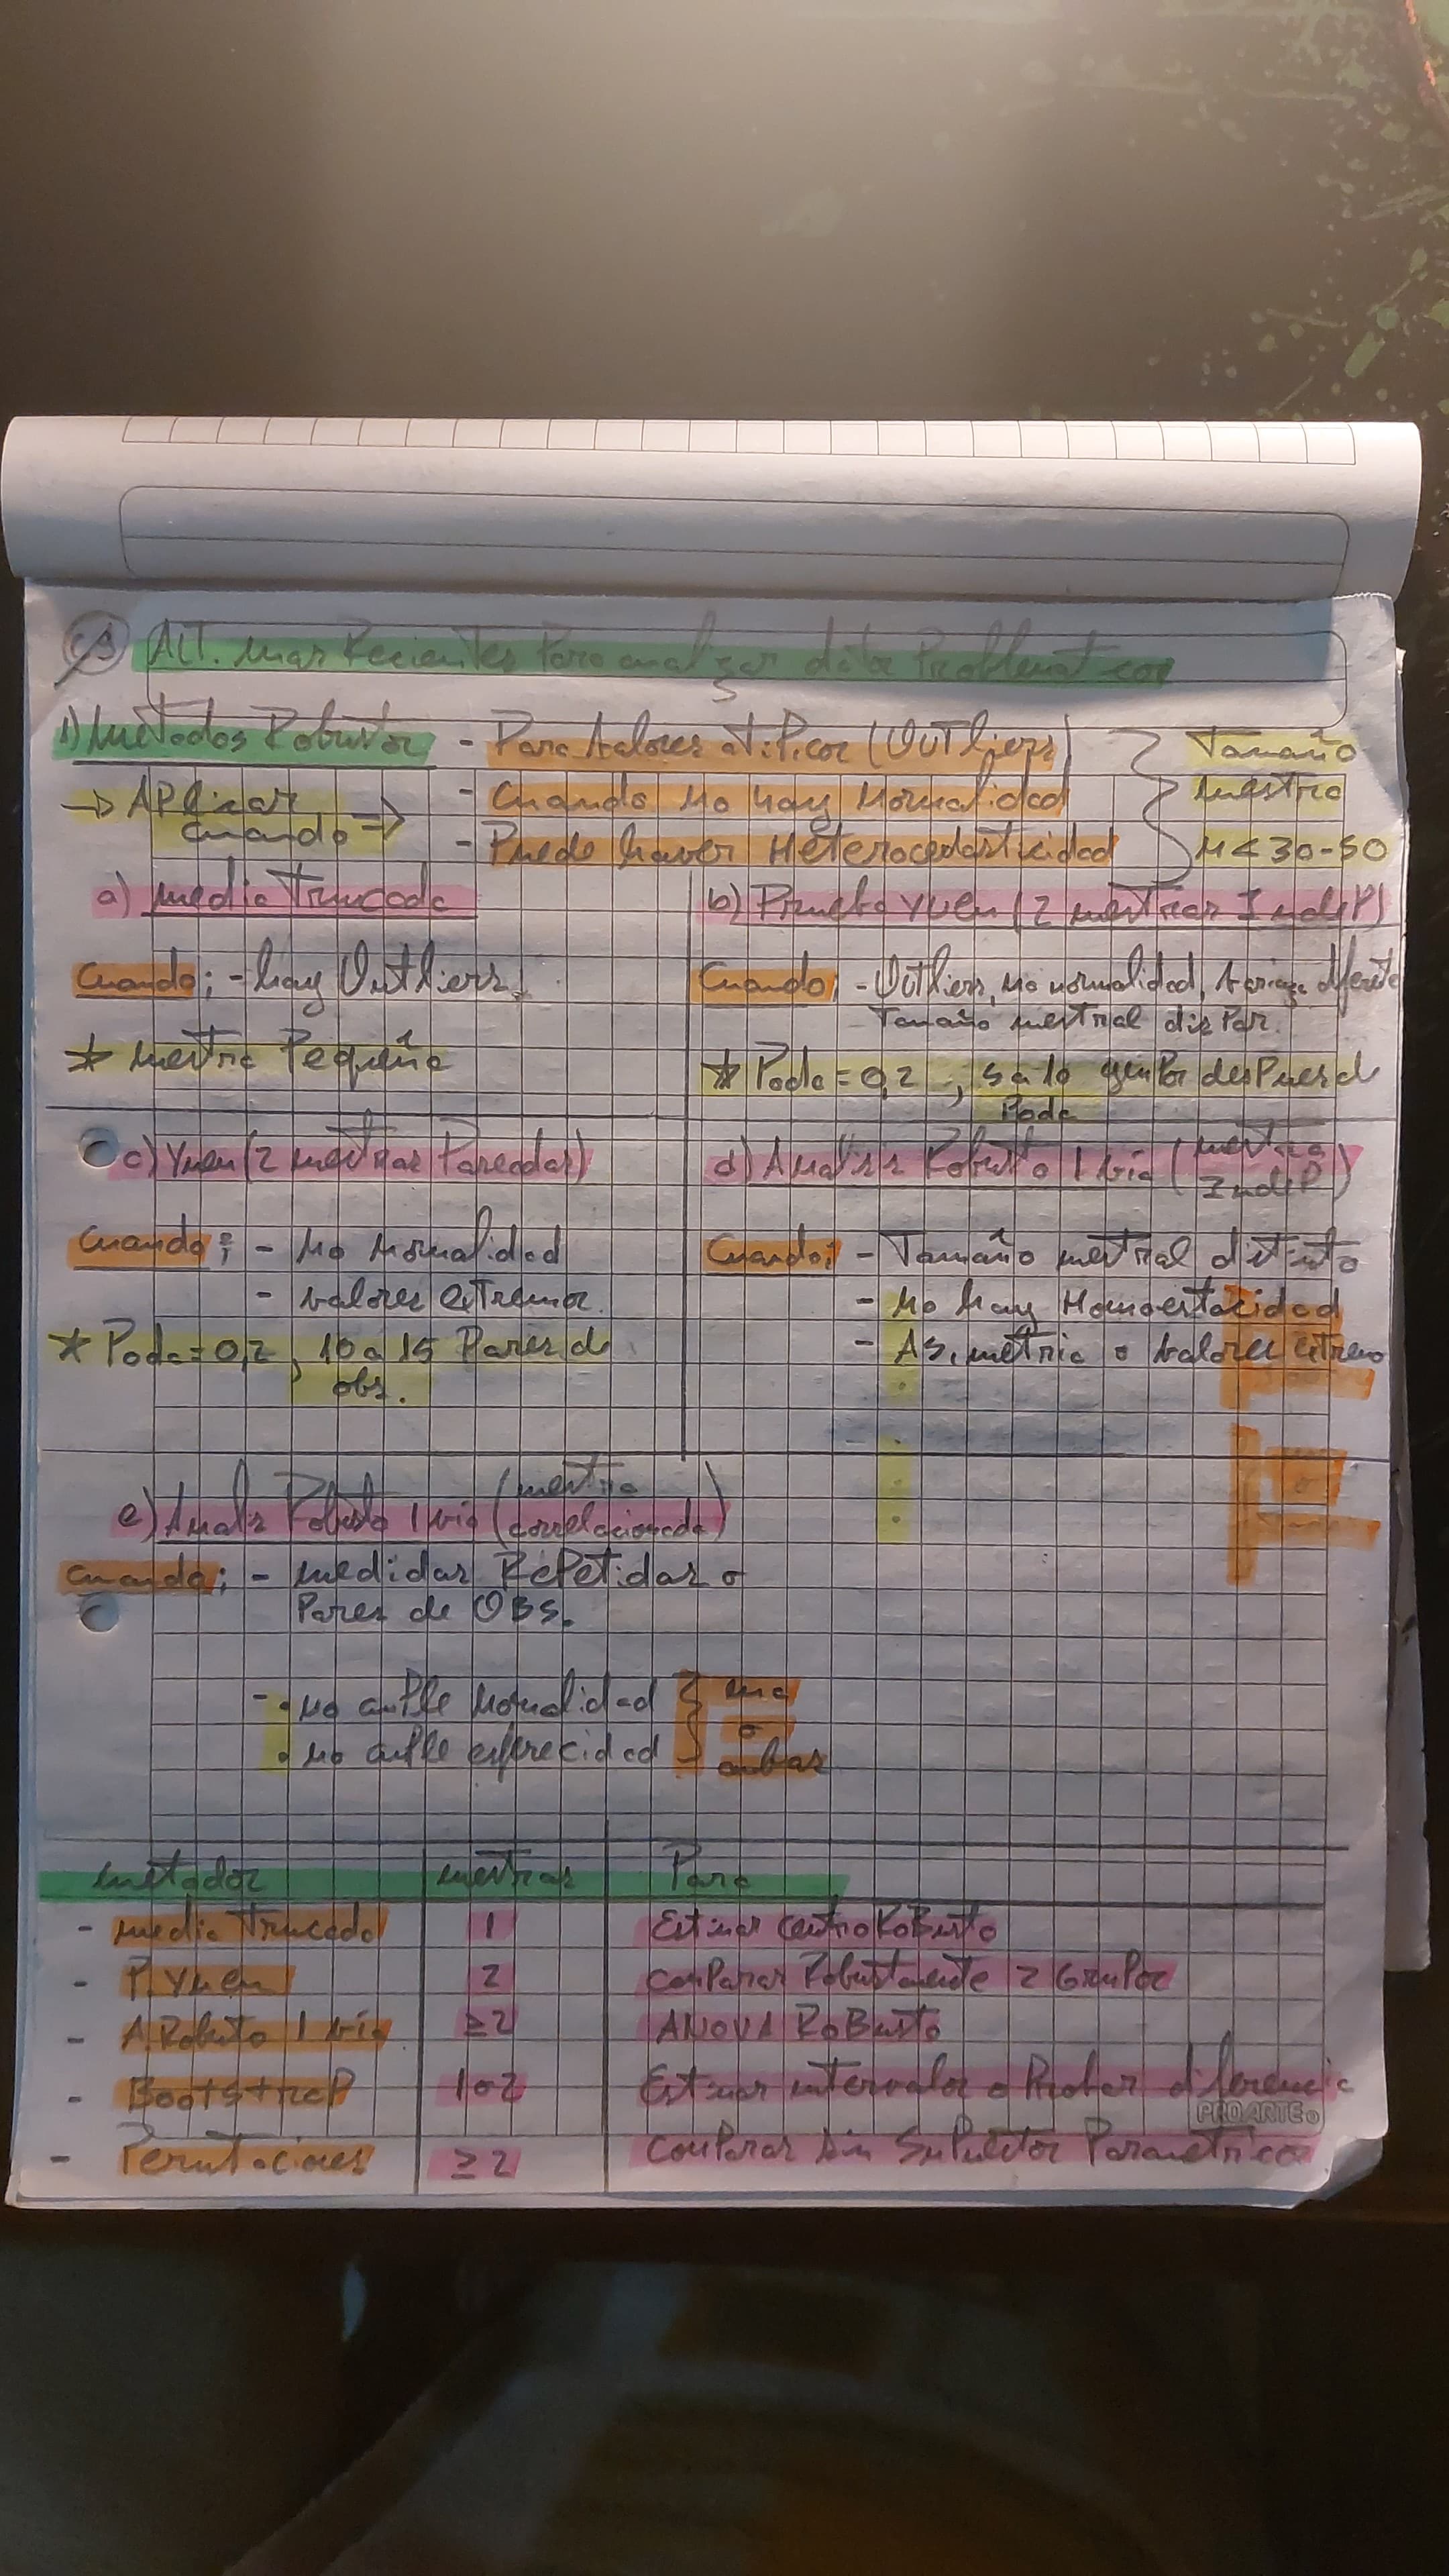 ALT. mas Recientes Para analizar datos Problematicos
1) Metodos Robustos - Para Valores atipicos (Outliers)
Tamaño
→ Aplicar
- Cuando no hay normalidad
muestra
cuando →
- Puede haver Heterocedasticidad
n < 30-50
a) media Truncada
Cuando: - hay Outliers
* muestra Pequeña
b) Prueba Yuen (2 muestras Indep)
Cuando: - Outliers, no normalidad, varianza diferente
Tamaño muestral dispar.
* Poda = 0,2 , 5 a 10 gruPo desPues de
Poda
c) Yuen (2 muestras Pareadas)
Cuando: - No Normalidad
- valores extremos.
* Poda = 0,2 , 10 a 15 Pares de
obs.
d) Analisis Robusto 1 via (muestra
IndeP)
Cuando: - Tamaño muestral distinto
- No hay Homoestacidad
- Asimetria o valores extremo
e) Analis Robusto 1 via (muestra
correlacionada)
Cuando: - medidas RePetidas o
Pares de OBS.
- • no cumPle Normalidad
una
o
• no cumPle esferecidad
ambas
metodos muestras Para
- media Truncada 1 Estimar Centro RoBusto
- P. Yuen 2 comParar Robustamente 2 GruPos
- A. Robusto 1 via ≥2 ANOVA RoBusto
- Bootstrap 1 o 2 Estimar intervalos o Probar diferencia
PROARTE
- Permutaciones ≥2 comParar sin SuPuestos Parametricos